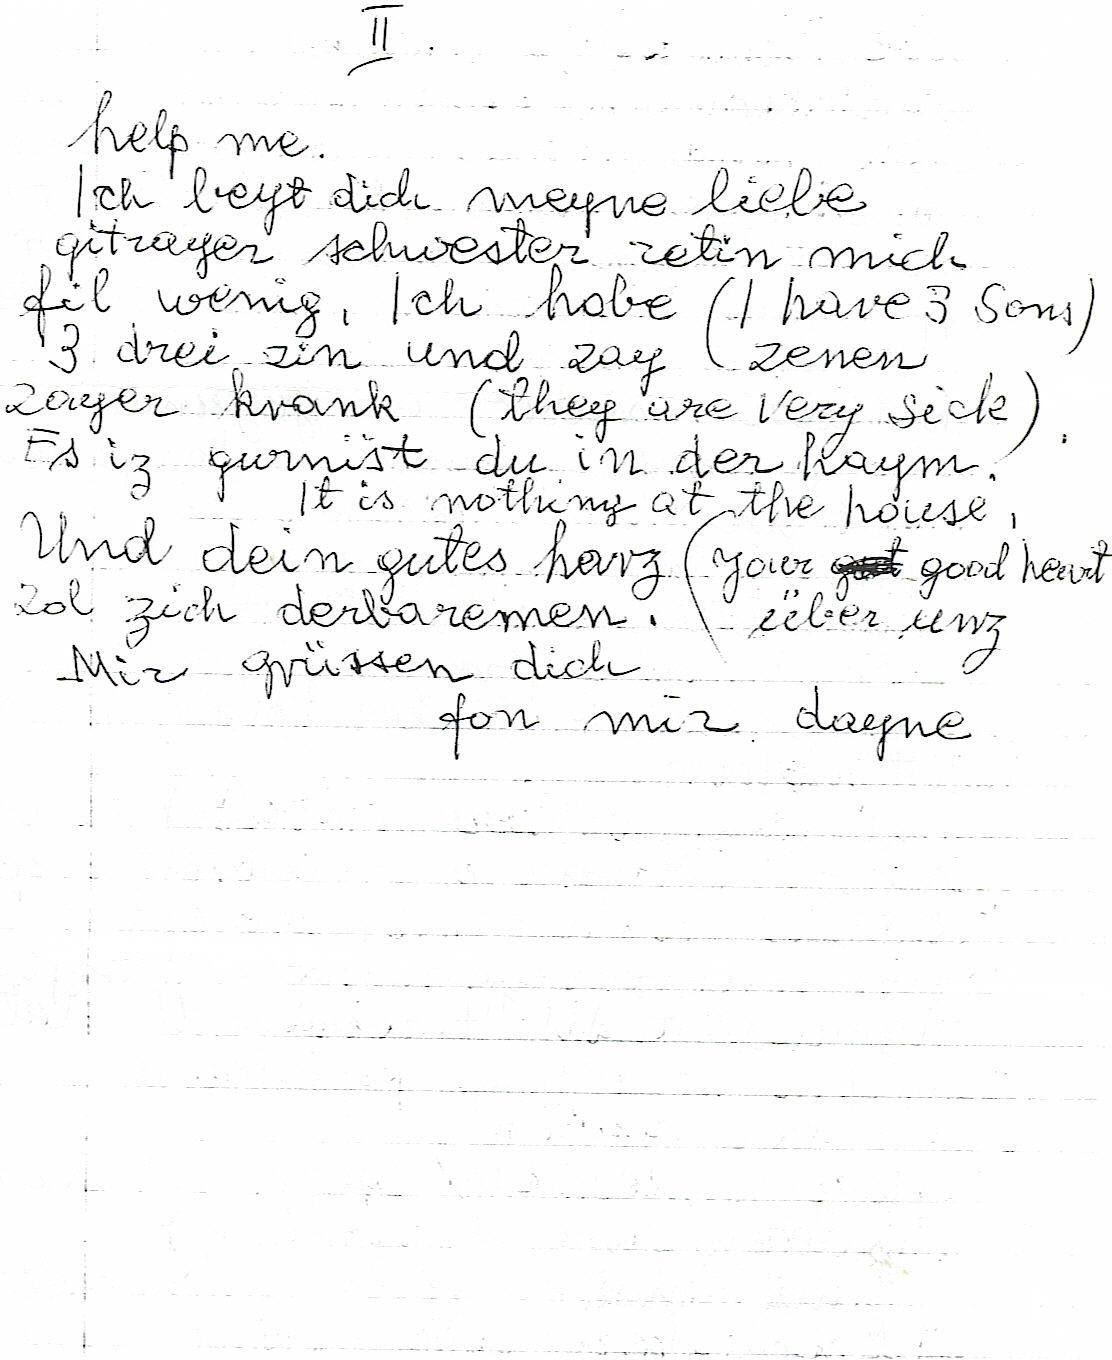 II.
help me.
Ich beyt dich meyne liebe
gitrayer schwester retin mich
fil wenig, Ich habe (I have 3 Sons)
3 drei zin und zay ( zenen
zayer krank (they are very sick).
Es iz gurnist du in der haym.
It is nothing at the house,
Und dein gutes harz (your good heart
zol zich derbaremen. über unz
Mir grüssen dich
fon mir dayne